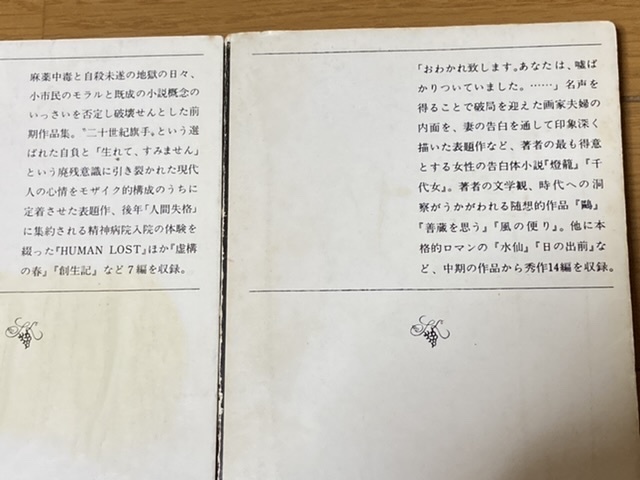 麻薬中毒と自殺未遂の地獄の日々、
小市民のモラルと既成の小説概念の
いっさいを否定し破壊せんとした前
期作品集。〝二十世紀旗手〟という選
ばれた自負と「生れて、すみません」
という廃残意識に引き裂かれた現代
人の心情をモザイク的構成のうちに
定着させた表題作、後年『人間失格』
に集約される精神病院入院の体験を
綴った『HUMAN LOST』ほか『虚構
の春』『創生記』など7編を収録。
「おわかれ致します。あなたは、嘘ば
かりついていました。……」名声を
得ることで破局を迎えた画家夫婦の
内面を、妻の告白を通して印象深く
描いた表題作など、著者の最も得意
とする女性の告白体小説『燈籠』『千
代女』。著者の文学観、時代への洞
察がうかがわれる随想的作品『鷗』
『善蔵を思う』『風の便り』。他に本
格的ロマンの『水仙』『日の出前』な
ど、中期の作品から秀作14編を収録。